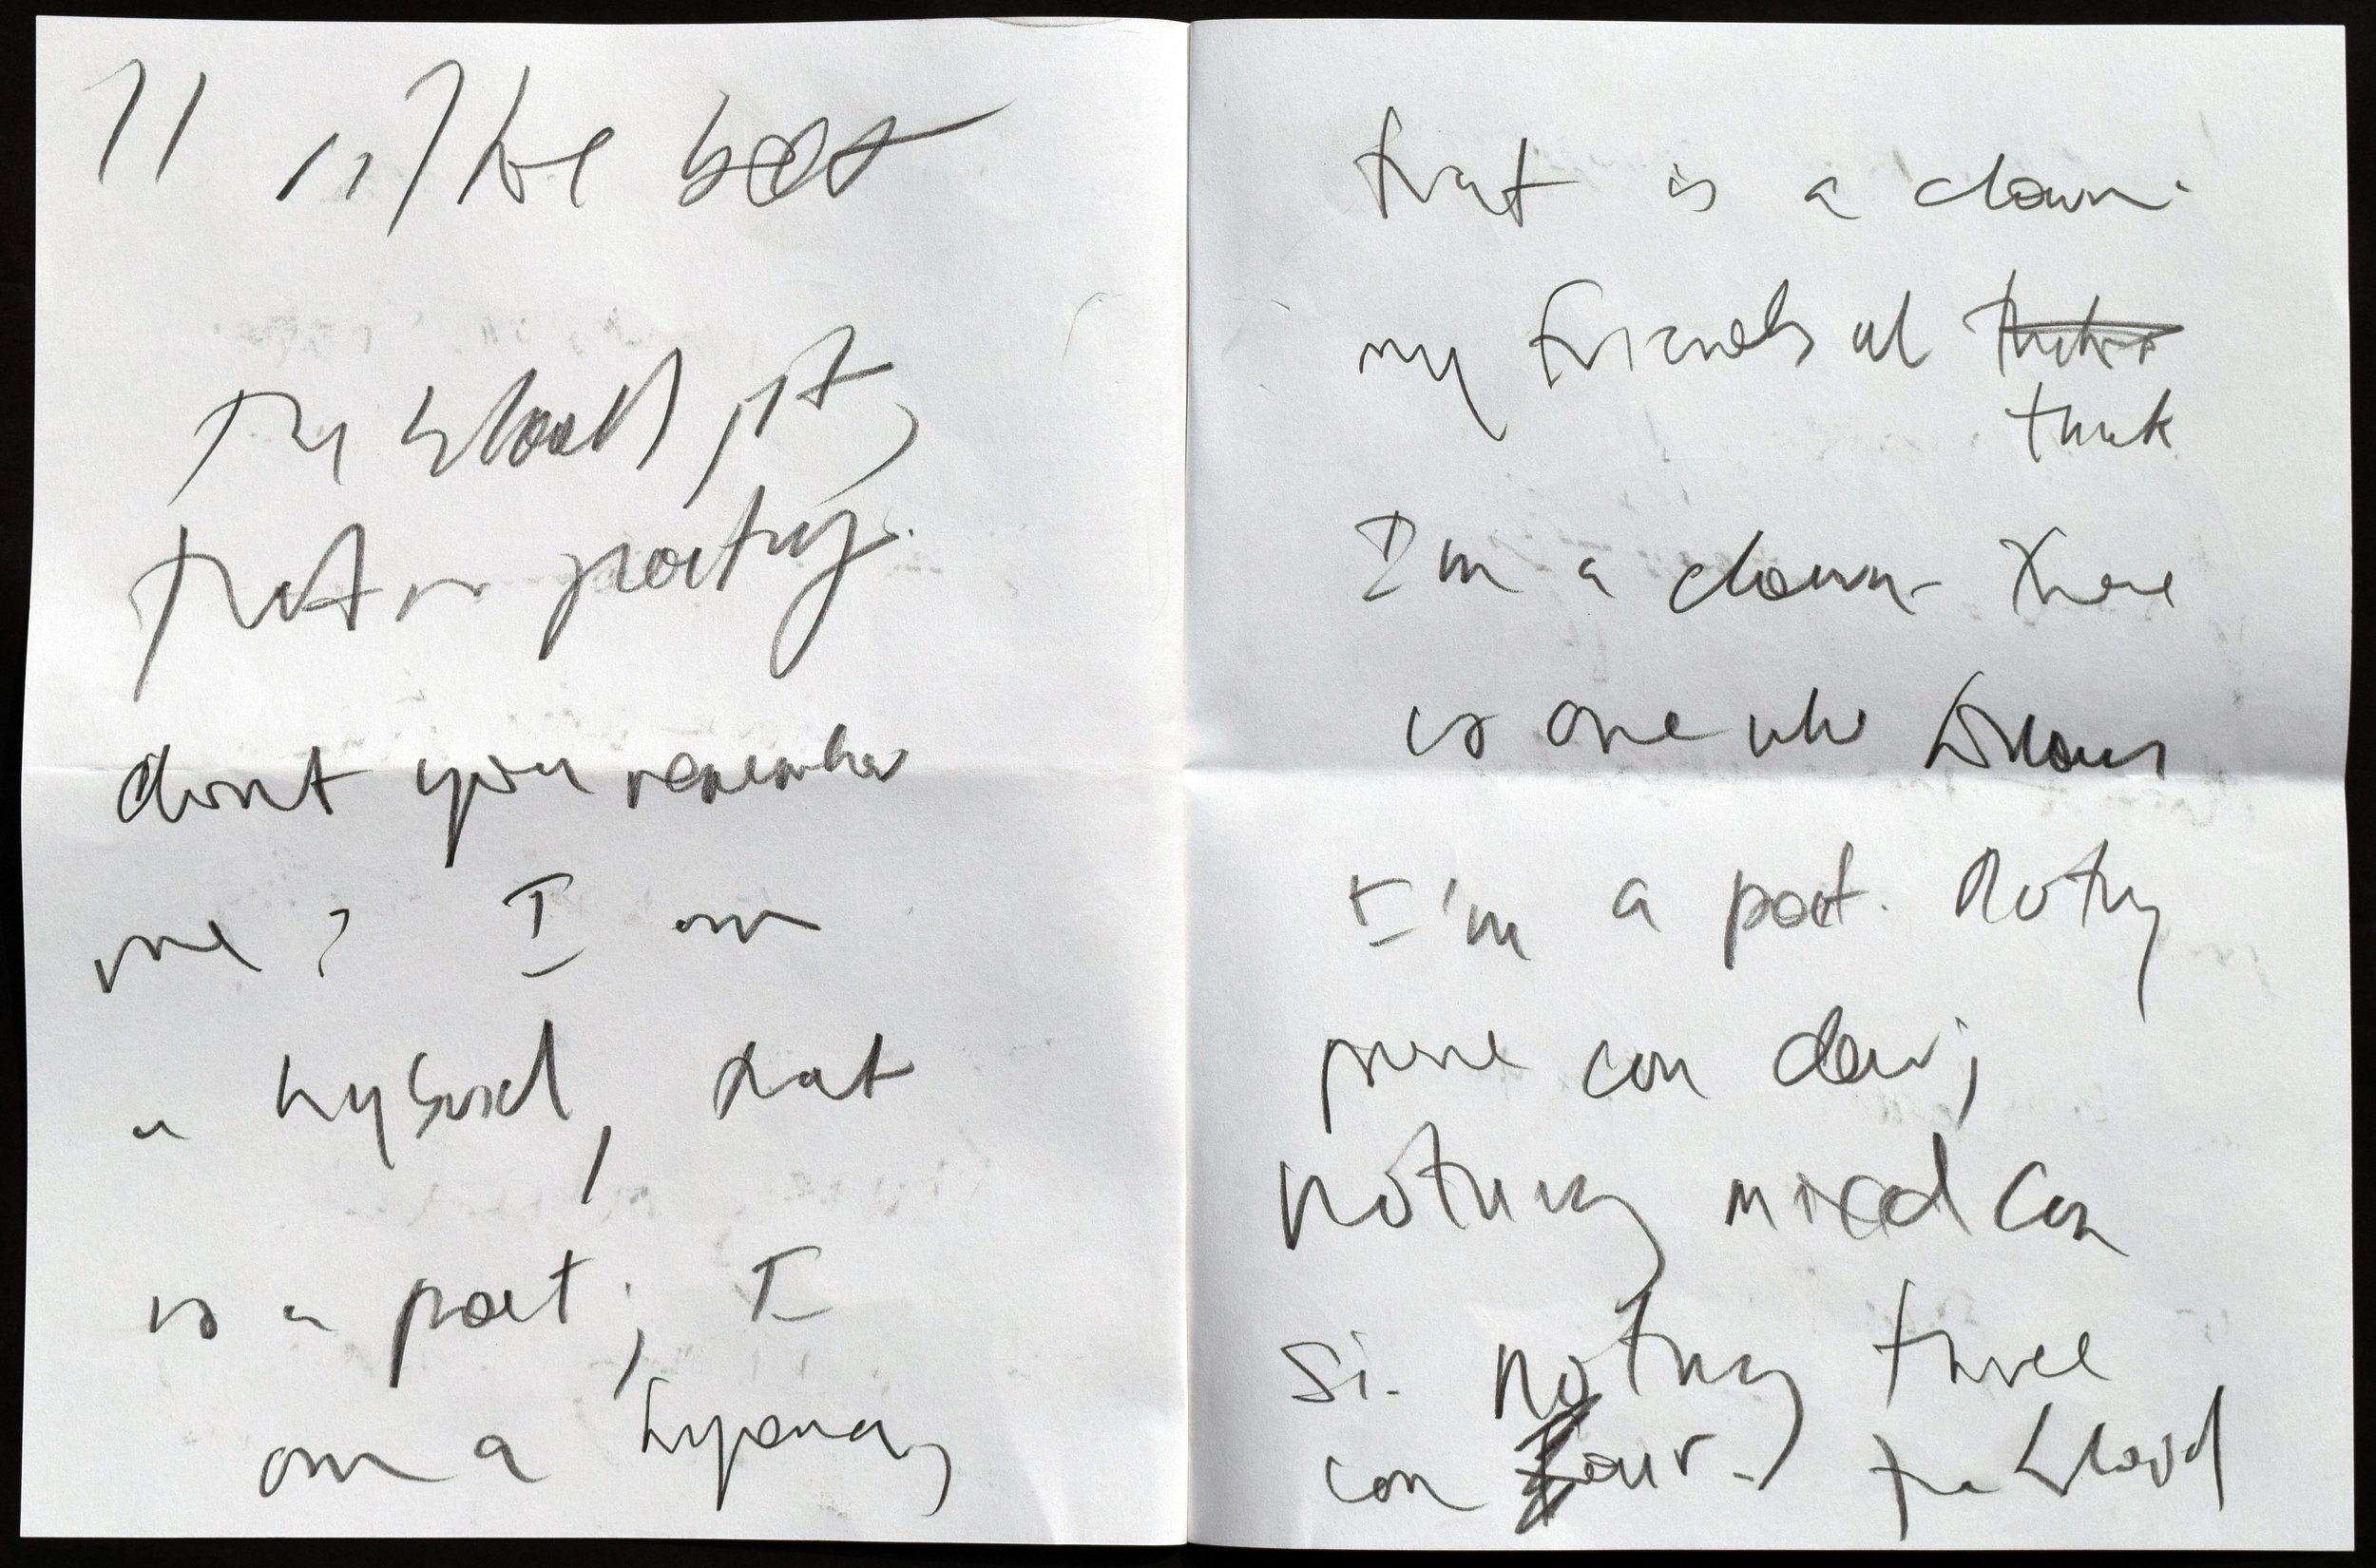 is the best
The blood jet,
that is poetry.
dont you remember
me? I am
a hybrid, that
is a poet; I
am a hyena,
that is a clown.
my friends al
think
I'm a clown- there
is one who knows
I'm a poet. Nothing
pure can
Nothing mixed can
si. Nothing three
can four. the blood